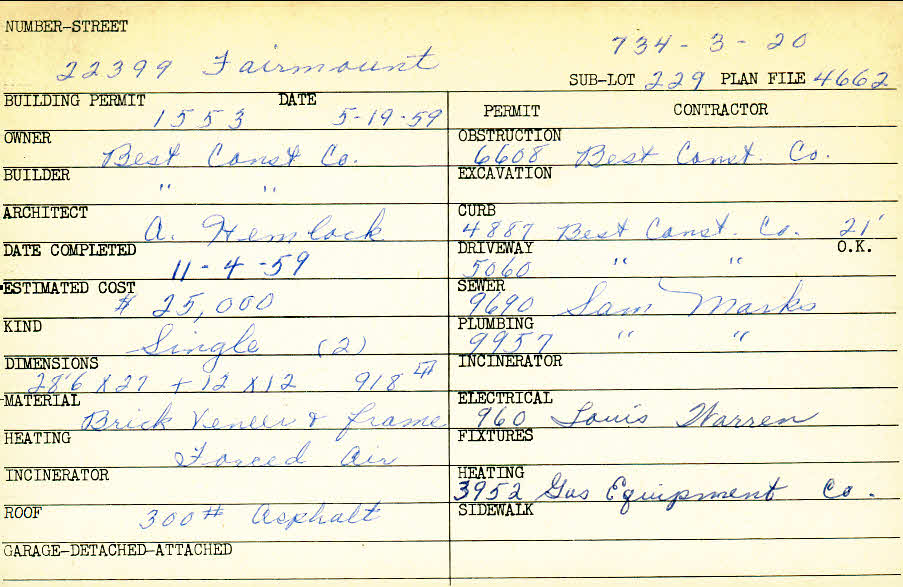 NUMBER-STREET
22399 Fairmount
734-3-20
SUB-LOT 229 PLAN FILE 4662
BUILDING PERMIT DATE
1553 5-19-59
OWNER
Best Const Co.
BUILDER
" "
ARCHITECT
A. Hemlock
DATE COMPLETED
11-4-59
ESTIMATED COST
$ 25,000
KIND
Single (2)
DIMENSIONS
28'6 X 27 + 12 X 12 918
MATERIAL
Brick Veneer & frame
HEATING
Forced Air
INCINERATOR
ROOF
300# Asphalt
GARAGE-DETACHED-ATTACHED
PERMIT CONTRACTOR
OBSTRUCTION
6608 Best Const. Co.
EXCAVATION
CURB
4887 Best Const. Co. 21'
DRIVEWAY O.K.
5060 " "
SEWER
9690 Sam Marks
PLUMBING
9957 " "
INCINERATOR
ELECTRICAL
960 Louis Warren
FIXTURES
HEATING
3952 Gas Equipment Co.
SIDEWALK